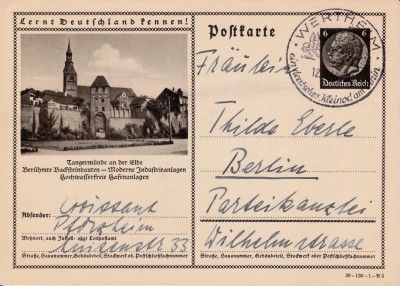 Lernt Deutschland kennen!
Postkarte
WERTHEIM
12.
ein deutsches Kleinod am Main
6 6
Deutsches Reich
Fräulein
Thilde Eberle
Berlin
Parteikanzlei
Wilhelmstrasse
Straße, Hausnummer, Gebäudeteil, Stockwerk oder Postschließfachnummer
Tangermünde an der Elbe
Berühmte Backsteinbauten — Moderne Industrieanlagen
Hochwasserfreie Hafenanlagen
Absender:
Pforzheim
33
Wohnort, auch Zustell- oder Leitpostamt
Straße, Hausnummer, Gebäudeteil, Stockwerk od. Postschließfachnummer